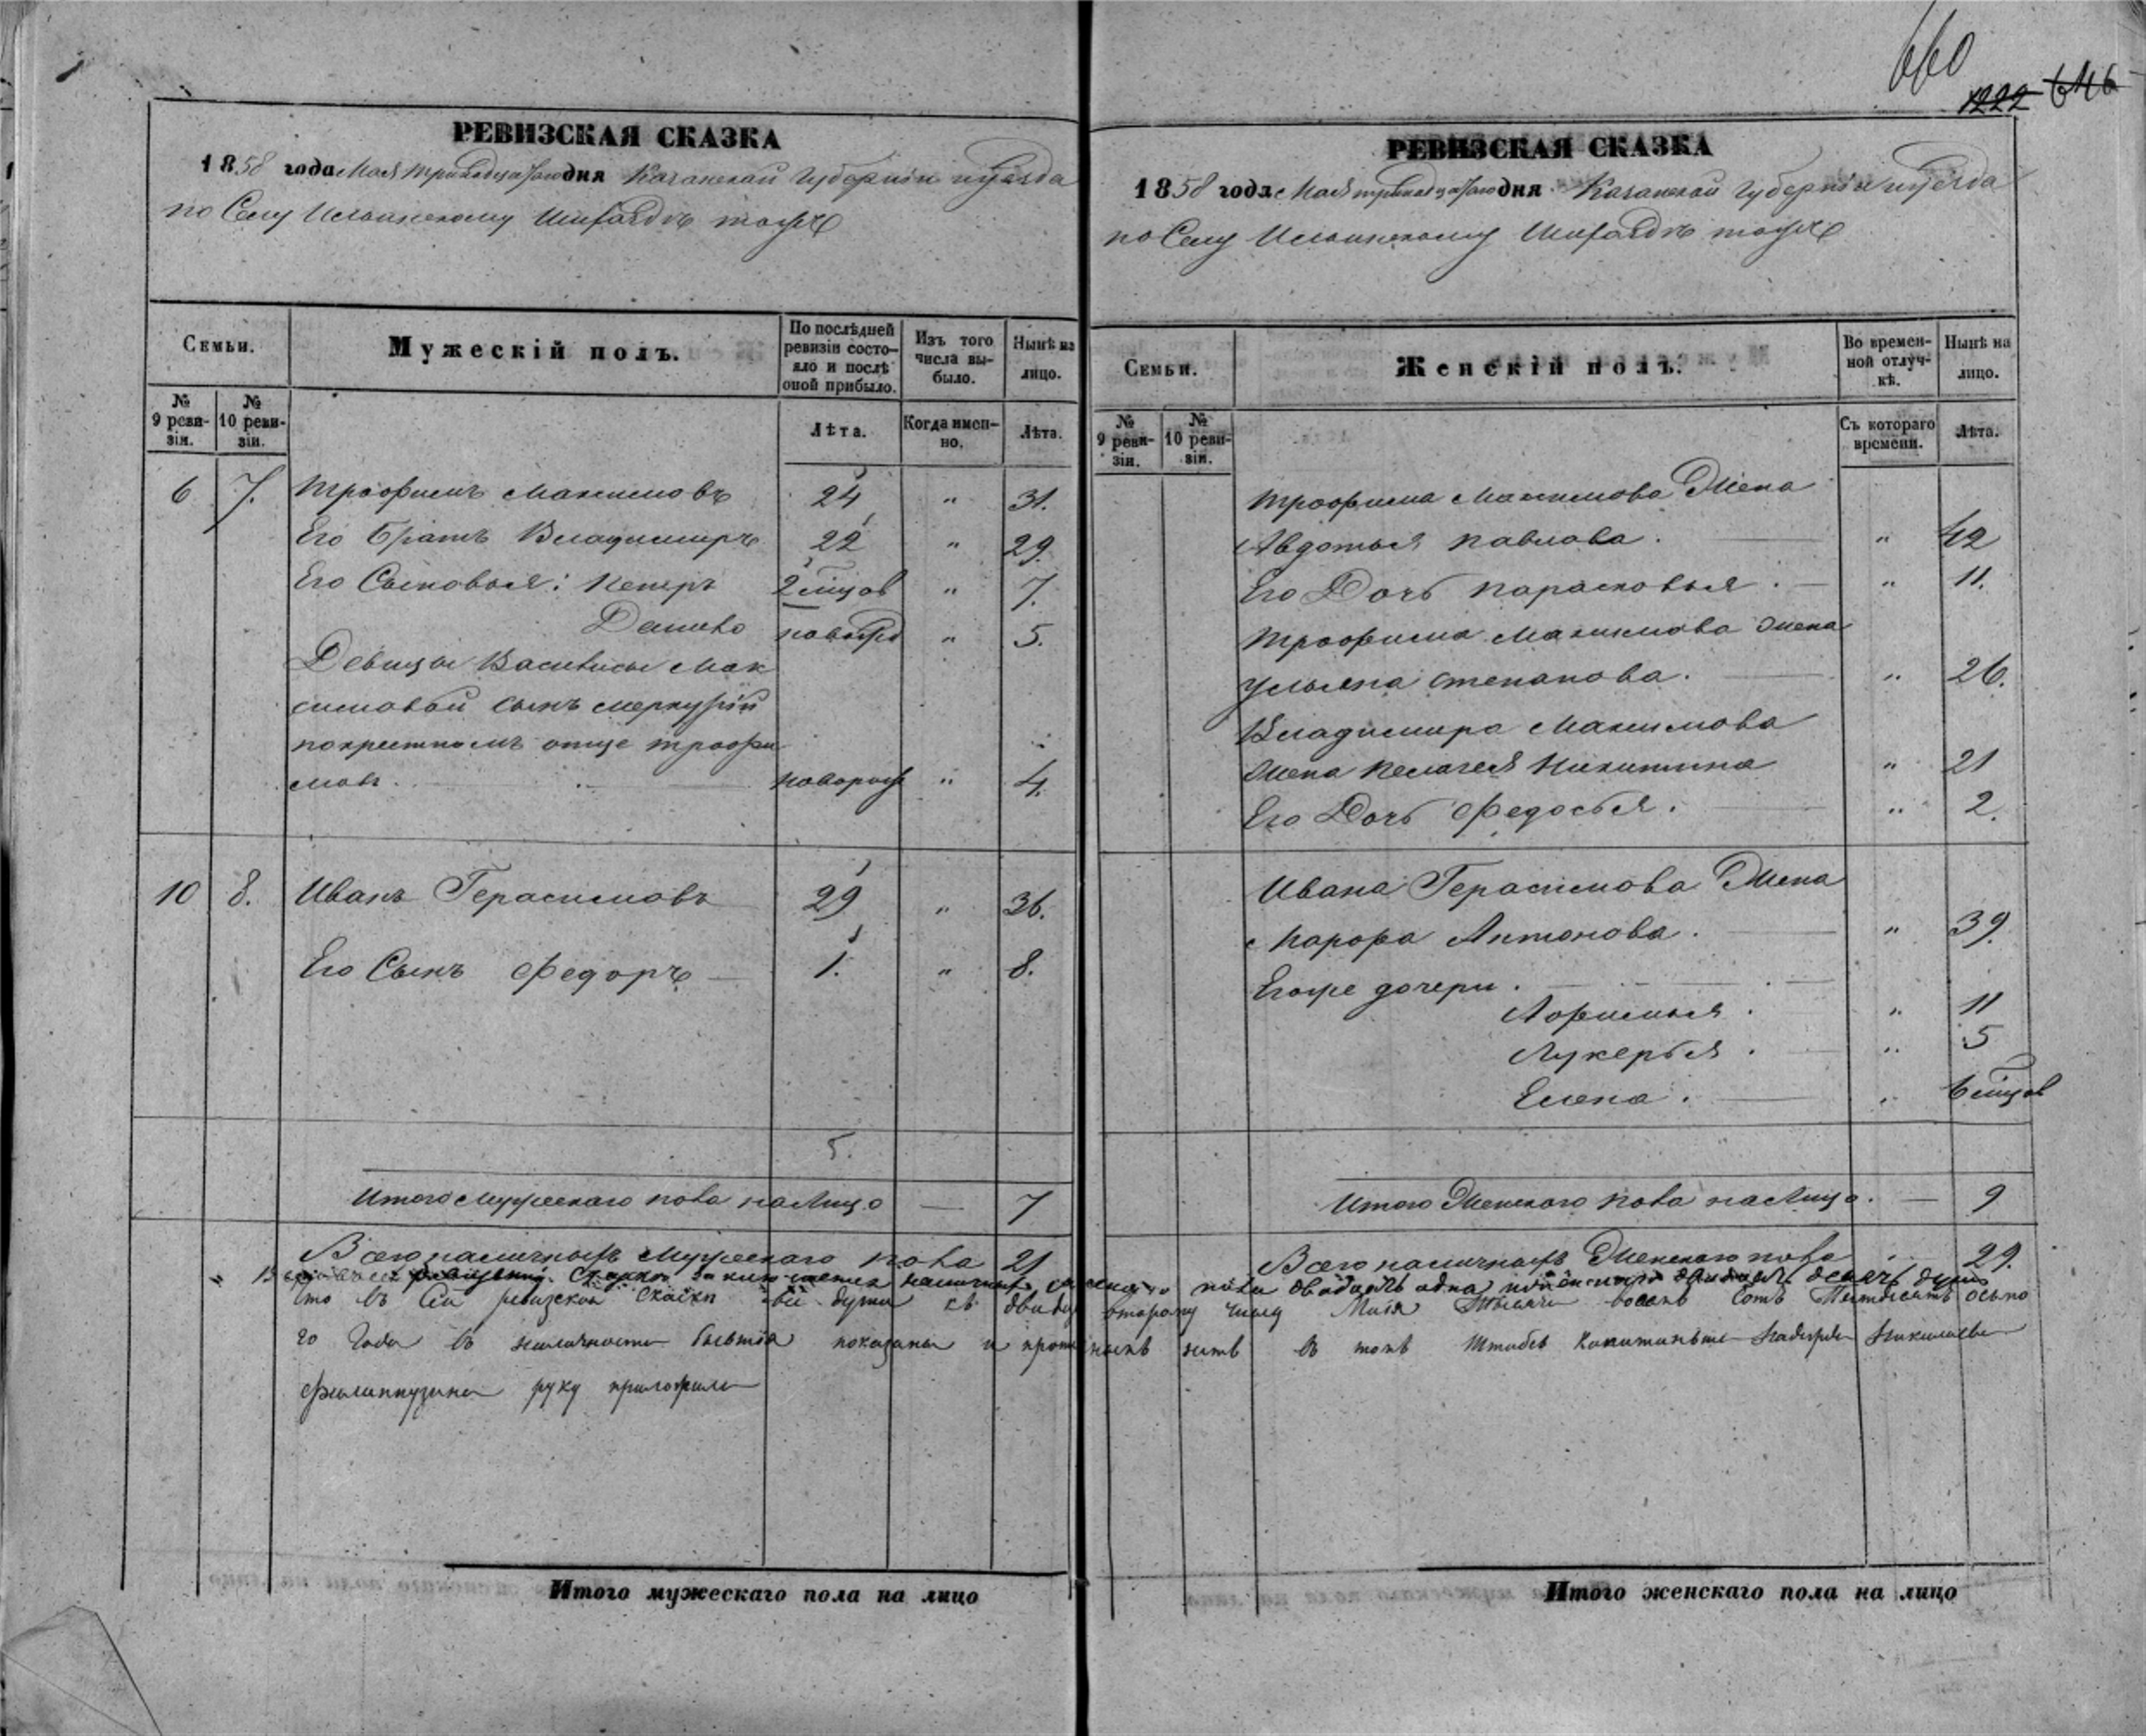 660
1222 646
РЕВИЗСКАЯ СКАЗКА
1858 года Мая тринадцатого дня Казанской Губернии и уезда
по Селу Ильинскому Ширданъ тожъ
Семьи.
Мужескій полъ.
По послѣдней ревизіи состояло и послѣ оной прибыло.
Изъ того числа выбыло.
Нынѣ на лицо.
№ 9 ревизіи.
№ 10 ревизіи.
Лѣта.
Когда именно.
Лѣта.
6 7. Трофимъ Максимовъ 24 " 31.
Его братъ Владимиръ 22 " 29.
Его Сыновья: Петръ 2 мцов " 7.
Данило новорож " 5.
Девицы Василисы Мак
симовой сынъ Меркурій
покрестномъ отце трофи
мовъ. новорож " 4.
10 8. Иванъ Герасимовъ 29 " 36.
Его Сынъ Федоръ 1. " 8.
5.
Итого мужескаго пола на лицо 7
Всего наличныхъ мужескаго пола 21
что въ сей ревизской скаски все души къ двадц
го года въ наличности бывшія показаны и проп
Филиппузина руку приложила
Итого мужескаго пола на лицо
РЕВИЗСКАЯ СКАЗКА
1858 года Мая тринадцатого дня Казанской Губернии и уезда
по Селу Ильинскому Ширданъ тожъ
Семьи.
Женскій полъ.
Во временной отлучкѣ.
Нынѣ на лицо.
№ 9 ревизіи.
№ 10 ревизіи.
Съ котораго времени.
Лѣта.
Трофима Максимова Жена
Авдотья Павлова. " 42
Его Дочь Парасковья. " 11.
Трофима Максимова жена
Ульяна Степанова. " 26.
Владимира Максимова
Жена Пелагея Никитина " 21
Его Дочь Федосья. " 2.
Ивана Герасимова Жена
Марфа Антонова. " 39.
Егоже дочери.
Афимья. " 11
Лукерья. " 5
Елена. " 6 мцов
Итого Женского пола на лицо. 9
Всего наличныхъ Женского пола 29.
пола двадцать одна женска двадцать девять душъ
второму числу Мая Тысяча восемь Сотъ Пятдесятъ осьмо
нетъ въ томъ Штабсъ Капитанъша Надежда Николаева
Итого женскаго пола на лицо